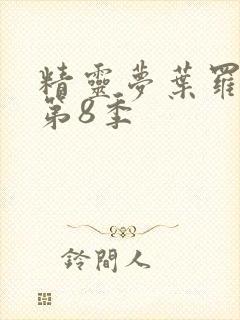 精靈夢葉羅
第8季
鈴間人